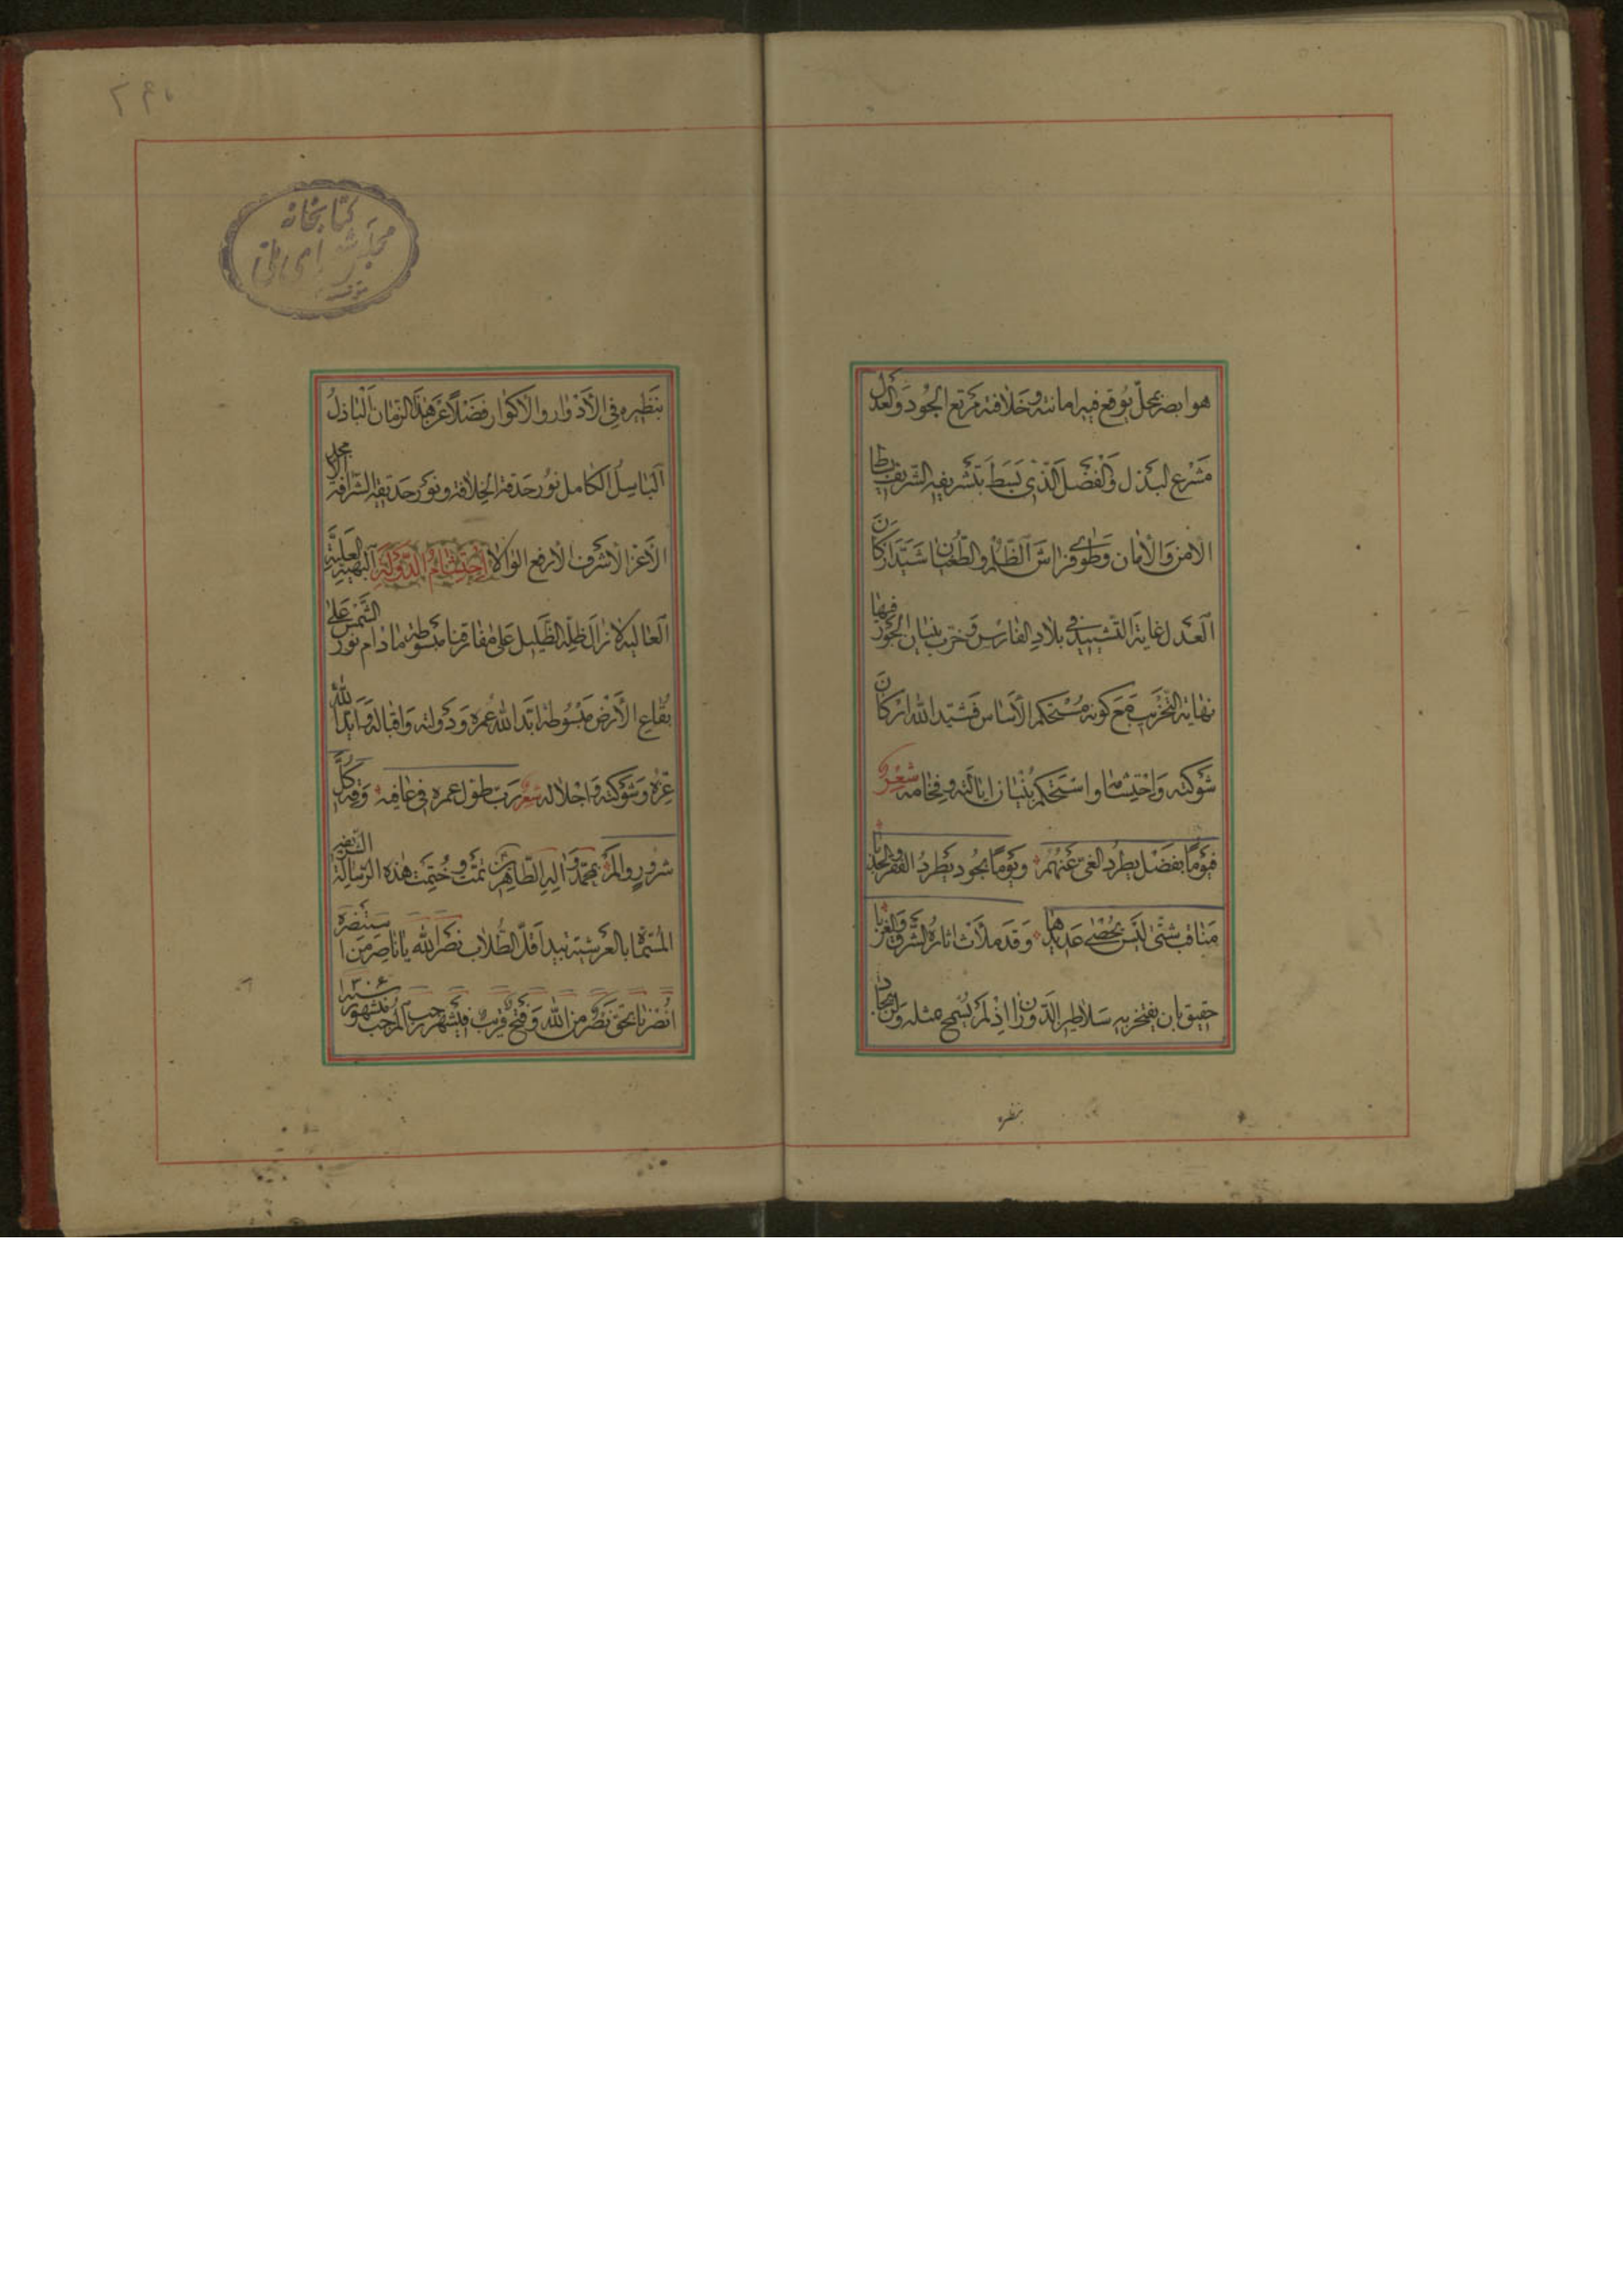 هو ابصر بمحل يوقع فيه امانته و خلافته مرتع الجود والعدل
مشرع البذل والفضل الذى بسط بتشريفه الشريف بساط
الامن والأمان وطوى فراش الظلم والطغيان شيّد اركان
العدل غاية التشييد فى بلاد الفارس و خرب بنيان الجور فيها
نهاية التخريب مع كونه مستحكم الأساس فشيد الله اركان
شوكته واحتشامه واستحكم بنيان ايالته و فخامته شعر
فيوما بفضل يطرد الغى عنهم ويوما بجود يطرد الفقر والجدبا
مناقب شتى ليس يحصى عديدها وقد ملأت اثاره الشرق والغربا
حقيق بان يفتخر به سلاطين الدوران اذ لم يسمح مثله ولن يجاد
بنظيره
بنظيره فى الأدوار والأكوار فضلاً عن هذا الزمان الباذل
الباسل الكامل نور حدقة الخلافة ونور حديقة الشرافة الاجل
الأعز الأشرف الأرفع الوالا احتشام الدولة البهية العلية
العالية لا زال ظله الظليل على مفارقنا مبسوطة ما دام نور الشمس على
بقاع الأرض مبسوطة ابد الله عمره و دولته واقباله وايد الله
عزه وشوكته واجلاله شعر رب طول عمره فى عافية وقه كل
شرور والم بمحمد واله الطاهرين تمت و ختمت هذه الرسالة الشريفة
المسماة بالعرشية بيد اقل الطلاب نصر الله يا ناصر من استنصره
انصرنا بحق نصر من الله وفتح قريب فى شهر رجب المرجب من شهور سنه ١٣٠٤
كتابخانه
مجلس شورای ملی